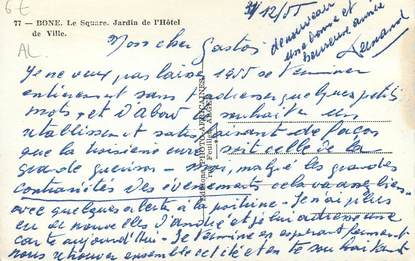 6 €
AL
77 — BONE. Le Square. Jardin de l'Hôtel
de Ville.
31/12/55
de nouveau
une bonne et
heureuse année
Fernand
Mon cher Gaston
Je ne veux pas laisser 1955 se terminer
entièrement sans t'adresser quelques petits
mots, et d'abord te souhaiter un
rétablissement satisfaisant de façon
que la troisième cure soit celle de la
grande guérison. malgré les grandes
contrariétés des événements cela va assez bien
avec quelques alertes à la poitrine. Je n'ai plus
eu de nouvelles d'André et je lui adresse une
carte aujourd'hui. Je termine en espérant
nous retrouver ensemble cet été et en te souhaitant
Editions PHOTO-AFRICAINES